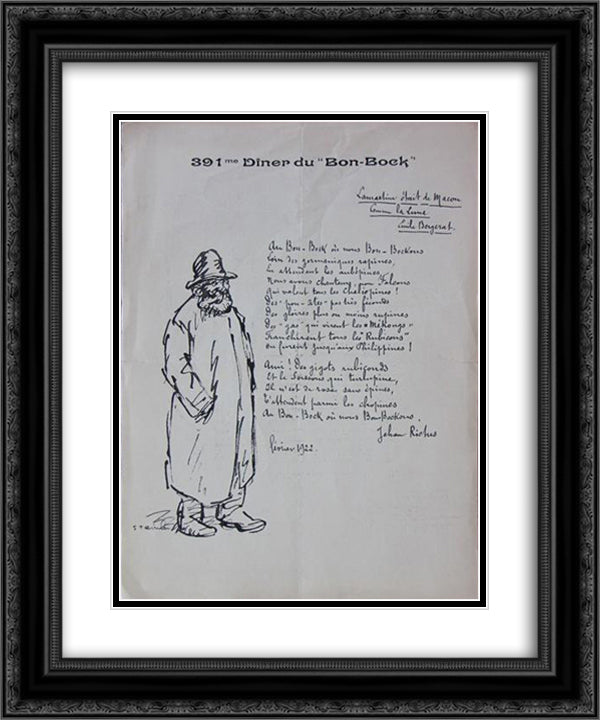 391me Dîner du "Bon-Bock"
Lamartine était de Macon
Comme la Lune
Emile Bergerat.
Au Bon-Bock où nous Bon-Bockons
Loin des germaniques rapines,
En attendant les aubépines,
Nous avons chanteurs pour Faucons
Qui valent tous les Chaliapines !
Des - pon - très peu féconds
Des gloires plus ou moins rupines
Des "gas" qui virent les "Mékongs"
Franchirent tous les "Rubicons"
ou furent jusqu'aux Philippines !
Ami ! Des gigots rubiconds
Et le Soissons qui turlupine,
Il n'est de roses sans épines,
T'attendent parmi les chopines
Au Bon-Bock où nous Bon-Bockons.
Jehan Rictus
février 1922.